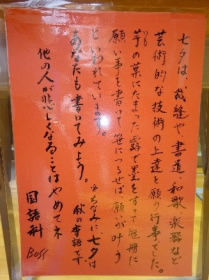 七夕は、裁縫や書道、和歌、楽器など
芸術的な技術の上達を願う行事でした。
芋の葉にたまった露で墨をすって短冊に
願い事を書いて笹につるせば願いが叶う
といわれています。
ちなみに、七夕は
秋の季語です
あなたも書いてみよう。
他の人が悲しくなることはやめてネ
国語科
Boss